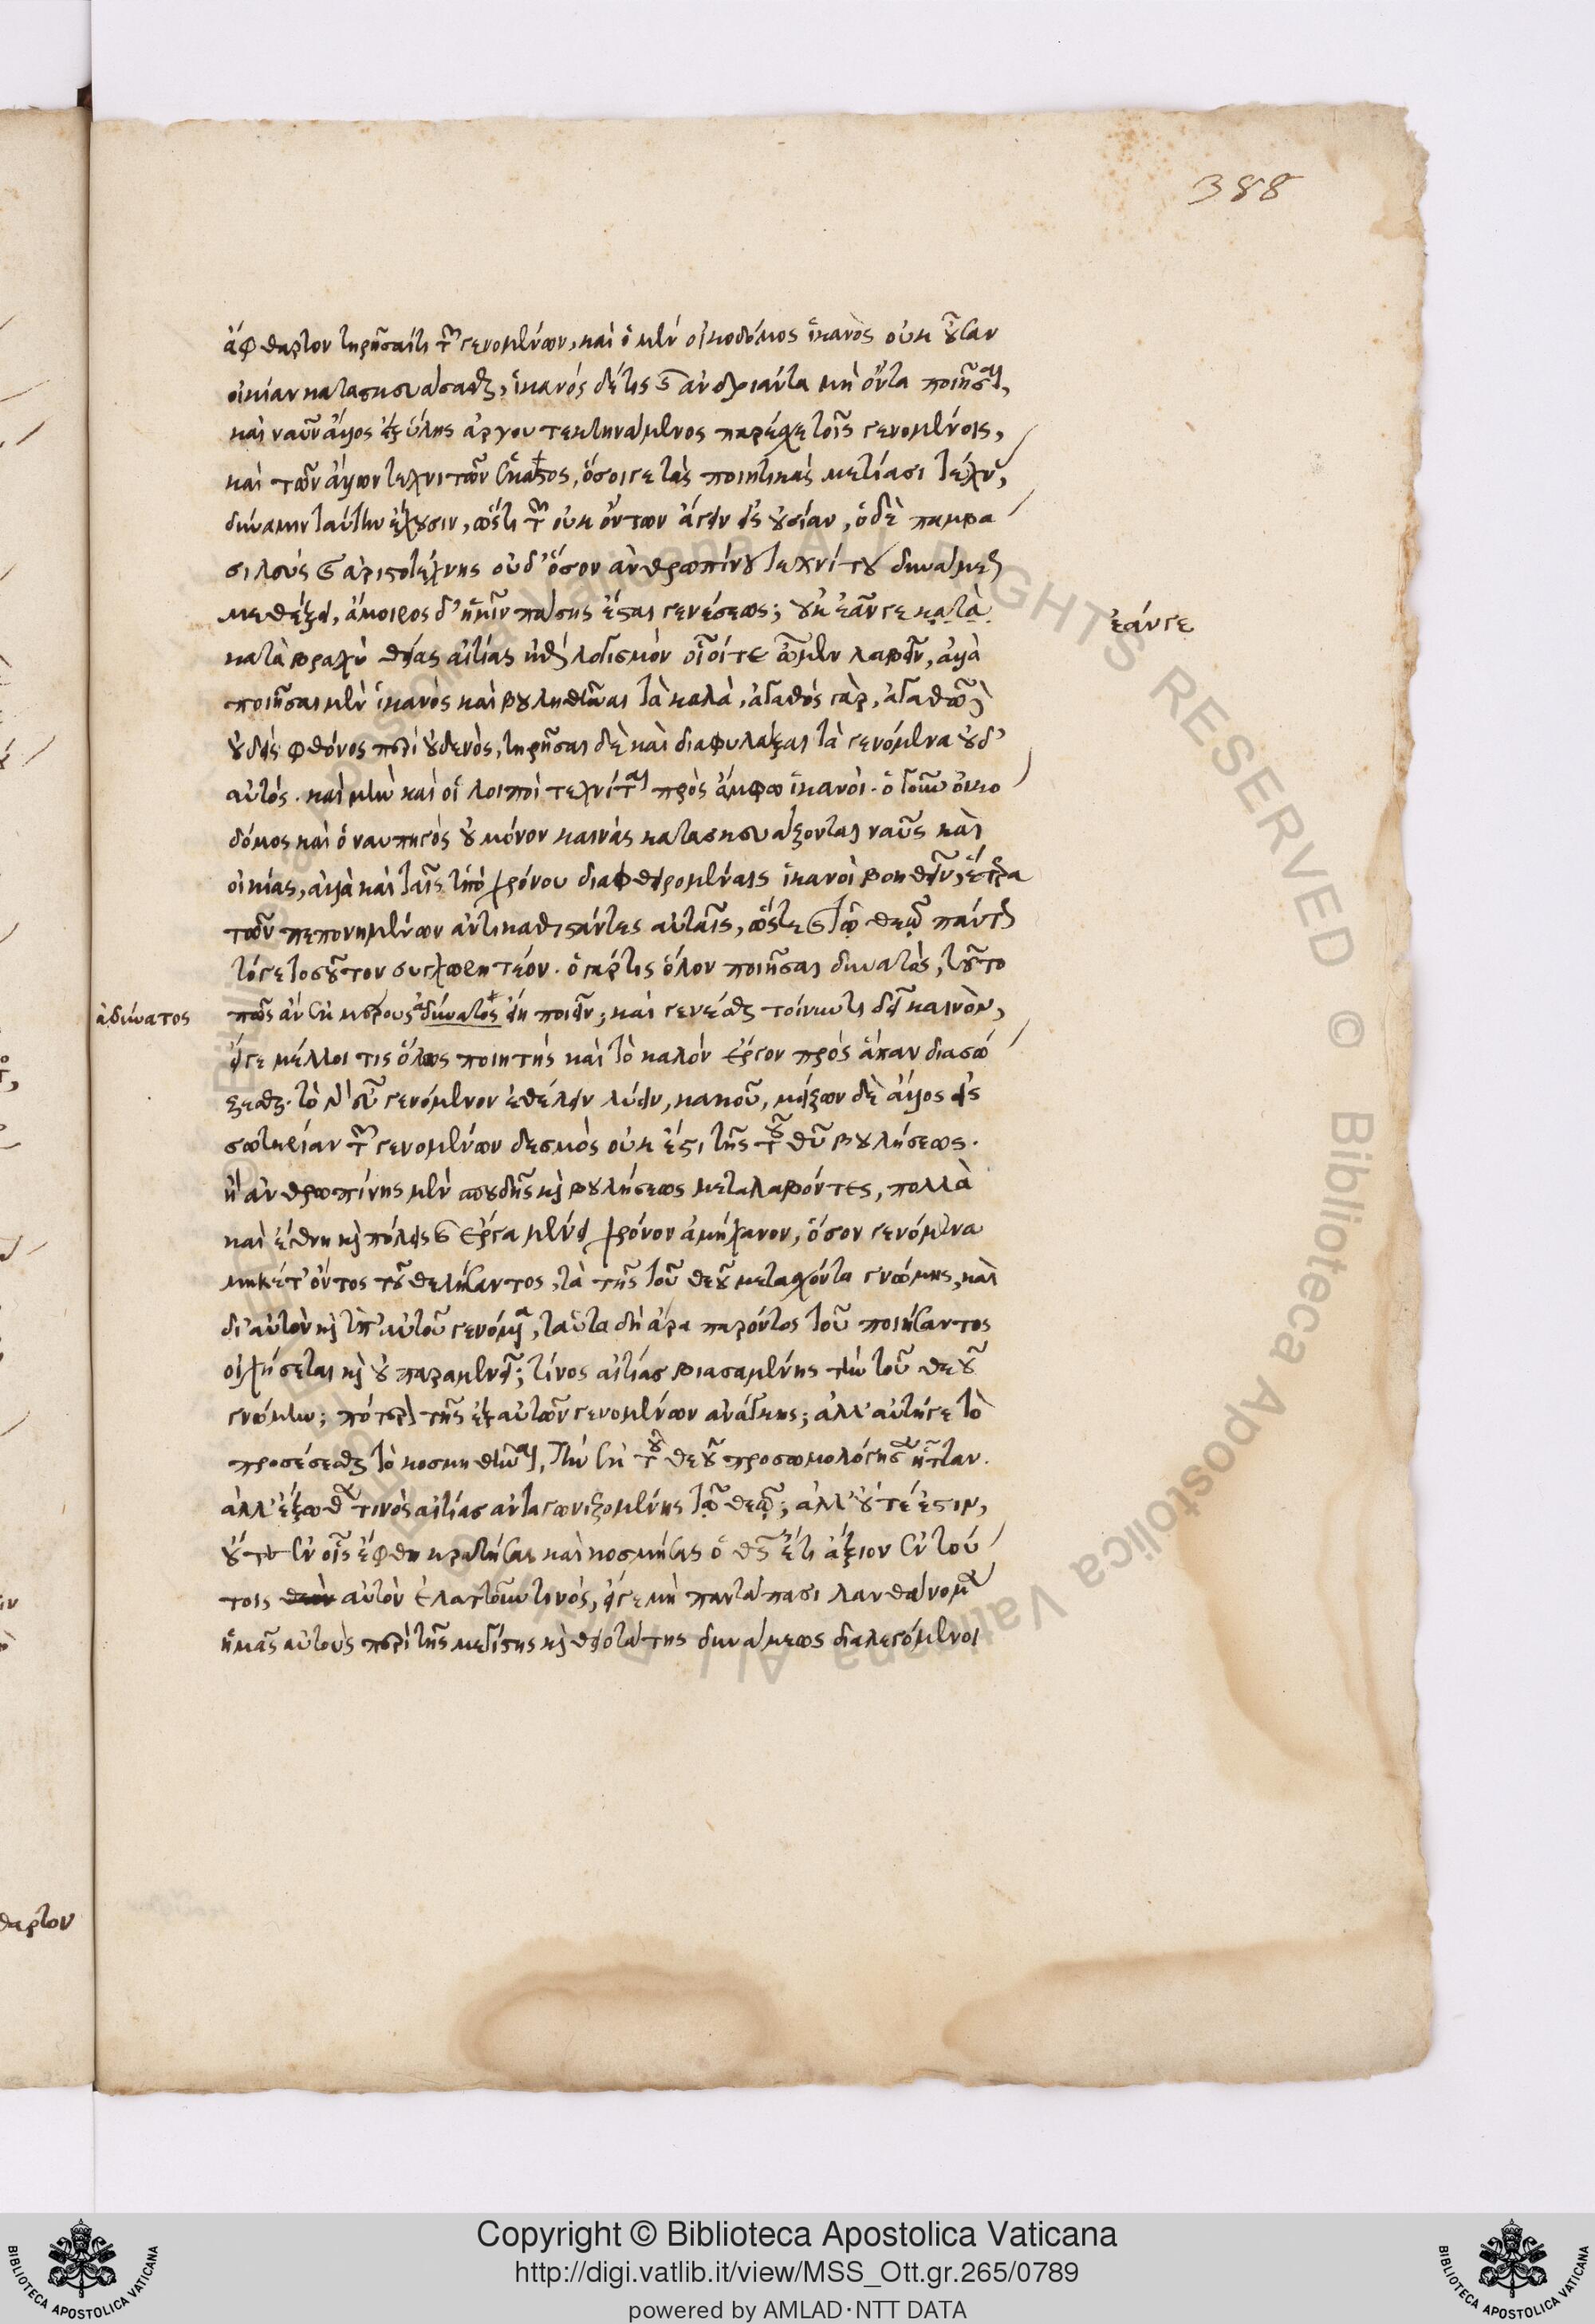 388
ἄφθαρτον τηρῆσαί τι τῶν γενομένων, καὶ ὁ μὲν οἰκοδόμος ἱκανὸς οὐκ οὖσαν
οἰκίαν κατασκευάσασθαι, ἱκανὸς δέ τις καὶ ἀνδριάντα μὴ ὄντα ποιῆσαι,
καὶ ναῦν ἄλλος ἐξ ὕλης ἀργοῦ τεκτηνάμενος παρέχει τοῖς γενομένοις,
καὶ τῶν ἄλλων τεχνιτῶν ἕκαστος, ὅσοι γε τὰς ποιητικὰς μετίασι τέχνας,
δύναμιν ταύτην ἔχουσιν, ὥς τι τῶν οὐκ ὄντων ἄγειν εἰς οὐσίαν, ὁ δὲ παμβα
σιλεὺς καὶ ἀριστοτέχνης οὐδ' ὅσον ἀνθρωπίνου τεχνίτου δυνάμεως
μεθέξει, ἄμοιρος δ' ἡμῖν πάσης ἔσται γενέσεως; οὐκ ἐάν γε κατὰ
ἐάν γε
κατὰ βραχὺ θείας αἰτίας λογισμὸν οἷοί τε ὦμεν λαβεῖν, ἀλλὰ
ποιῆσαι μὲν ἱκανὸς καὶ βουληθῆναι τὰ καλά, ἀγαθὸς γάρ, ἀγαθῷ δὲ
οὐδεὶς φθόνος περὶ οὐδενός, τηρῆσαι δὲ καὶ διαφυλάξαι τὰ γενόμενα οὐδ'
αὐτός. καὶ μὴν καὶ οἱ λοιποὶ τεχνῖται πρὸς ἄμφω ἱκανοί. ὁ γοῦν οἰκο
δόμος καὶ ὁ ναυπηγὸς οὐ μόνον καινὰς κατασκευάζονται ναῦς καὶ
οἰκίας, ἀλλὰ καὶ ταῖς ὑπὸ χρόνου διαφθειρομέναις ἱκανοὶ βοηθεῖν, ἕτερα
τῶν πεπονημένων ἀντικαθιστάντες αὐταῖς, ὥστε καὶ τῷ θεῷ πάντως
τό γε τοσοῦτον συγχωρητέον. ὁ γάρ τις ὅλον ποιῆσαι δυνατός, τοῦτο
ἀδύνατος
πῶς ἂν ἐκ μέρους ἀδύνατος εἴη ποιεῖν; καὶ γενέσθαι τοίνυν τι δεῖ καινόν,
εἴ γε μέλλοι τις ὅλως ποιητὴς καὶ τὸ καλὸν ἔργον πρὸς ἅπαν διασώ
ζεσθαι. τὸ γὰρ εὖ γενόμενον ἐθέλειν λύειν, κακοῦ, μείζων δὲ ἄλλος εἰς
σωτηρίαν τῶν γενομένων δεσμὸς οὐκ ἔστι τῆς τοῦ θεοῦ βουλήσεως.
ἢ ἀνθρωπίνης μὲν σπουδῆς καὶ βουλήσεως μεταλαβόντες, πολλὰ
καὶ ἔθνη καὶ πόλεις καὶ ἔργα μένει χρόνον ἀμήχανον, ὅσον γενόμενα
μηκέτ' ὄντος τοῦ θελήσαντος, τὰ τῆς τοῦ θεοῦ μετασχόντα γνώμης, καὶ
δι' αὐτὸν καὶ ὑπ' αὐτοῦ γενόμενα, ταῦτα δὴ ἄρα παρόντος τοῦ ποιήσαντος
οἰχήσεται καὶ οὐ παραμενεῖ; τίνος αἰτίας βιασαμένης τὴν τοῦ θεοῦ
γνώμην; πότερον τῆς ἐξ αὐτῶν γενομένων ἀνάγκης; ἀλλ' αὐτή γε τὸ
προσέσεσθαι τὸ κοσμηθῆναι, τὴν ἐκ τοῦ θεοῦ προσωμολόγησεν ἧτταν.
ἀλλ' ἔξωθέν τινος αἰτίας ἀνταγωνιζομένης τῷ θεῷ; ἀλλ' οὔτε ἔστιν,
οὔτε ἐν οἷς ἔφθη κρατήσας καὶ κοσμήσας ὁ θεὸς ἔτι ἄξιον ἐν τού
τοις αὐτὸν ἐλαττοῦν τινός, εἴ γε μὴ παντάπασι λανθάνομεν
ἡμᾶς αὐτοὺς περὶ τῆς μεγίστης καὶ θειοτάτης δυνάμεως διαλεγόμενοι
θαρτον
Copyright © Biblioteca Apostolica Vaticana
http://digi.vatlib.it/view/MSS_Ott.gr.265/0789
powered by AMLAD·NTT DATA
BIBLIOTECA APOSTOLICA VATICANA
BIBLIOTECA APOSTOLICA VATICANA